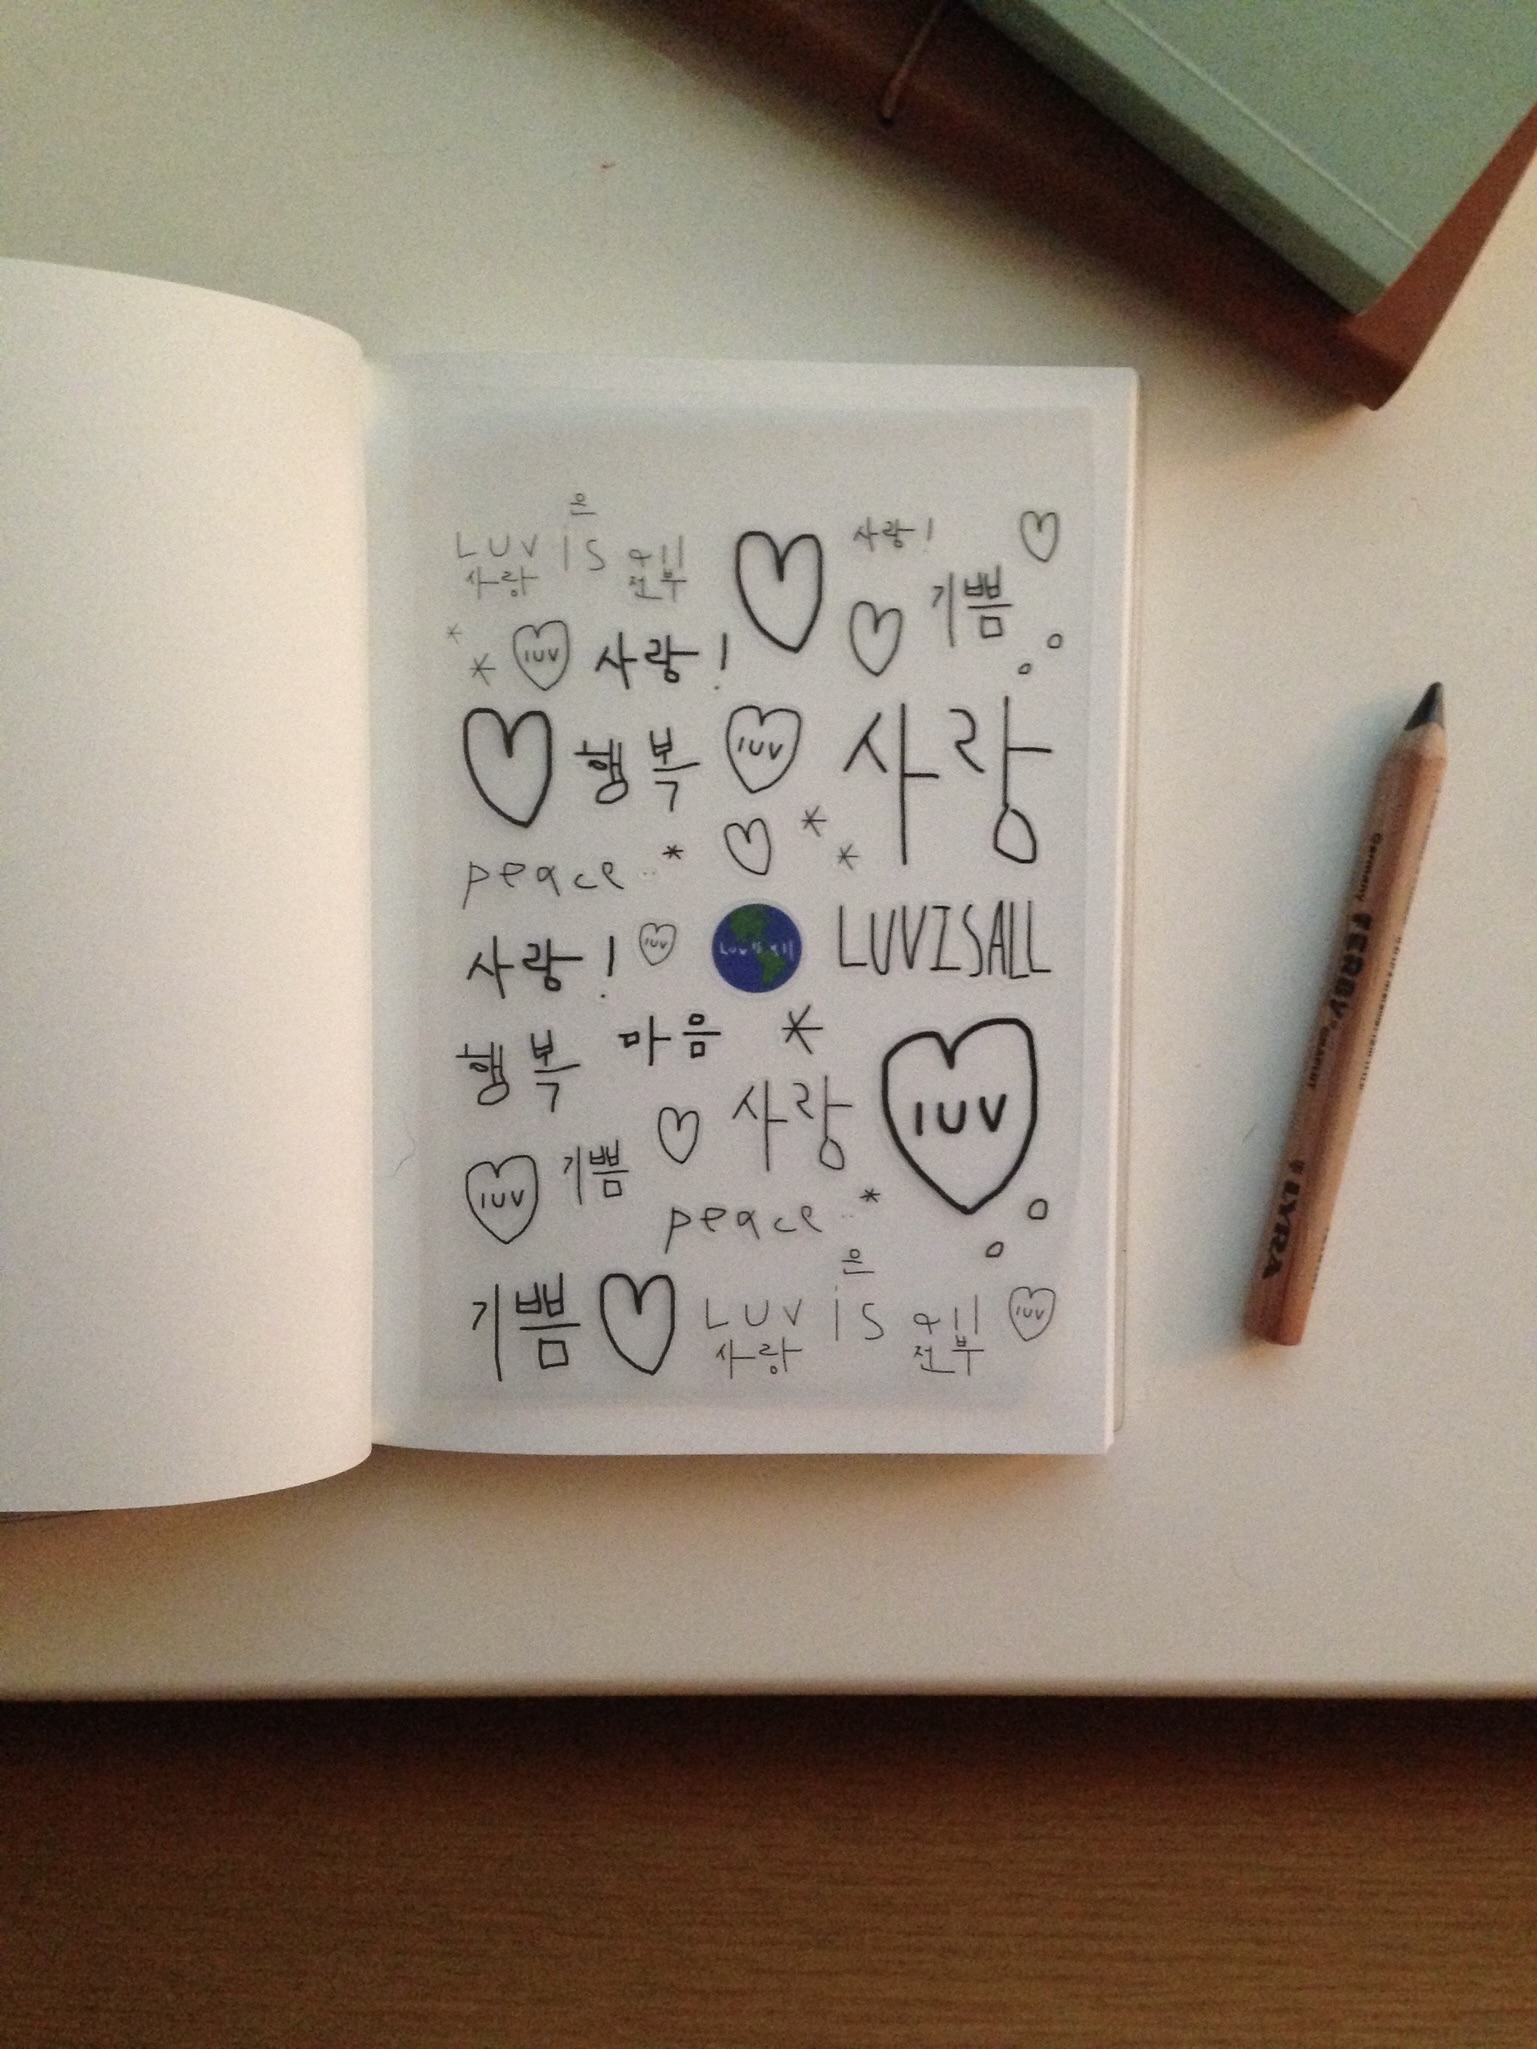 은
LUV is all
사랑 전부
사랑!
기쁨
luv 사랑!
행복 luv 사랑
peace
사랑! luv Luv is all LUVISALL
행복 마음
사랑 luv
luv 기쁨
peace
은
기쁨 LUV is all luv
사랑 전부
Germany FERBY
LYRA